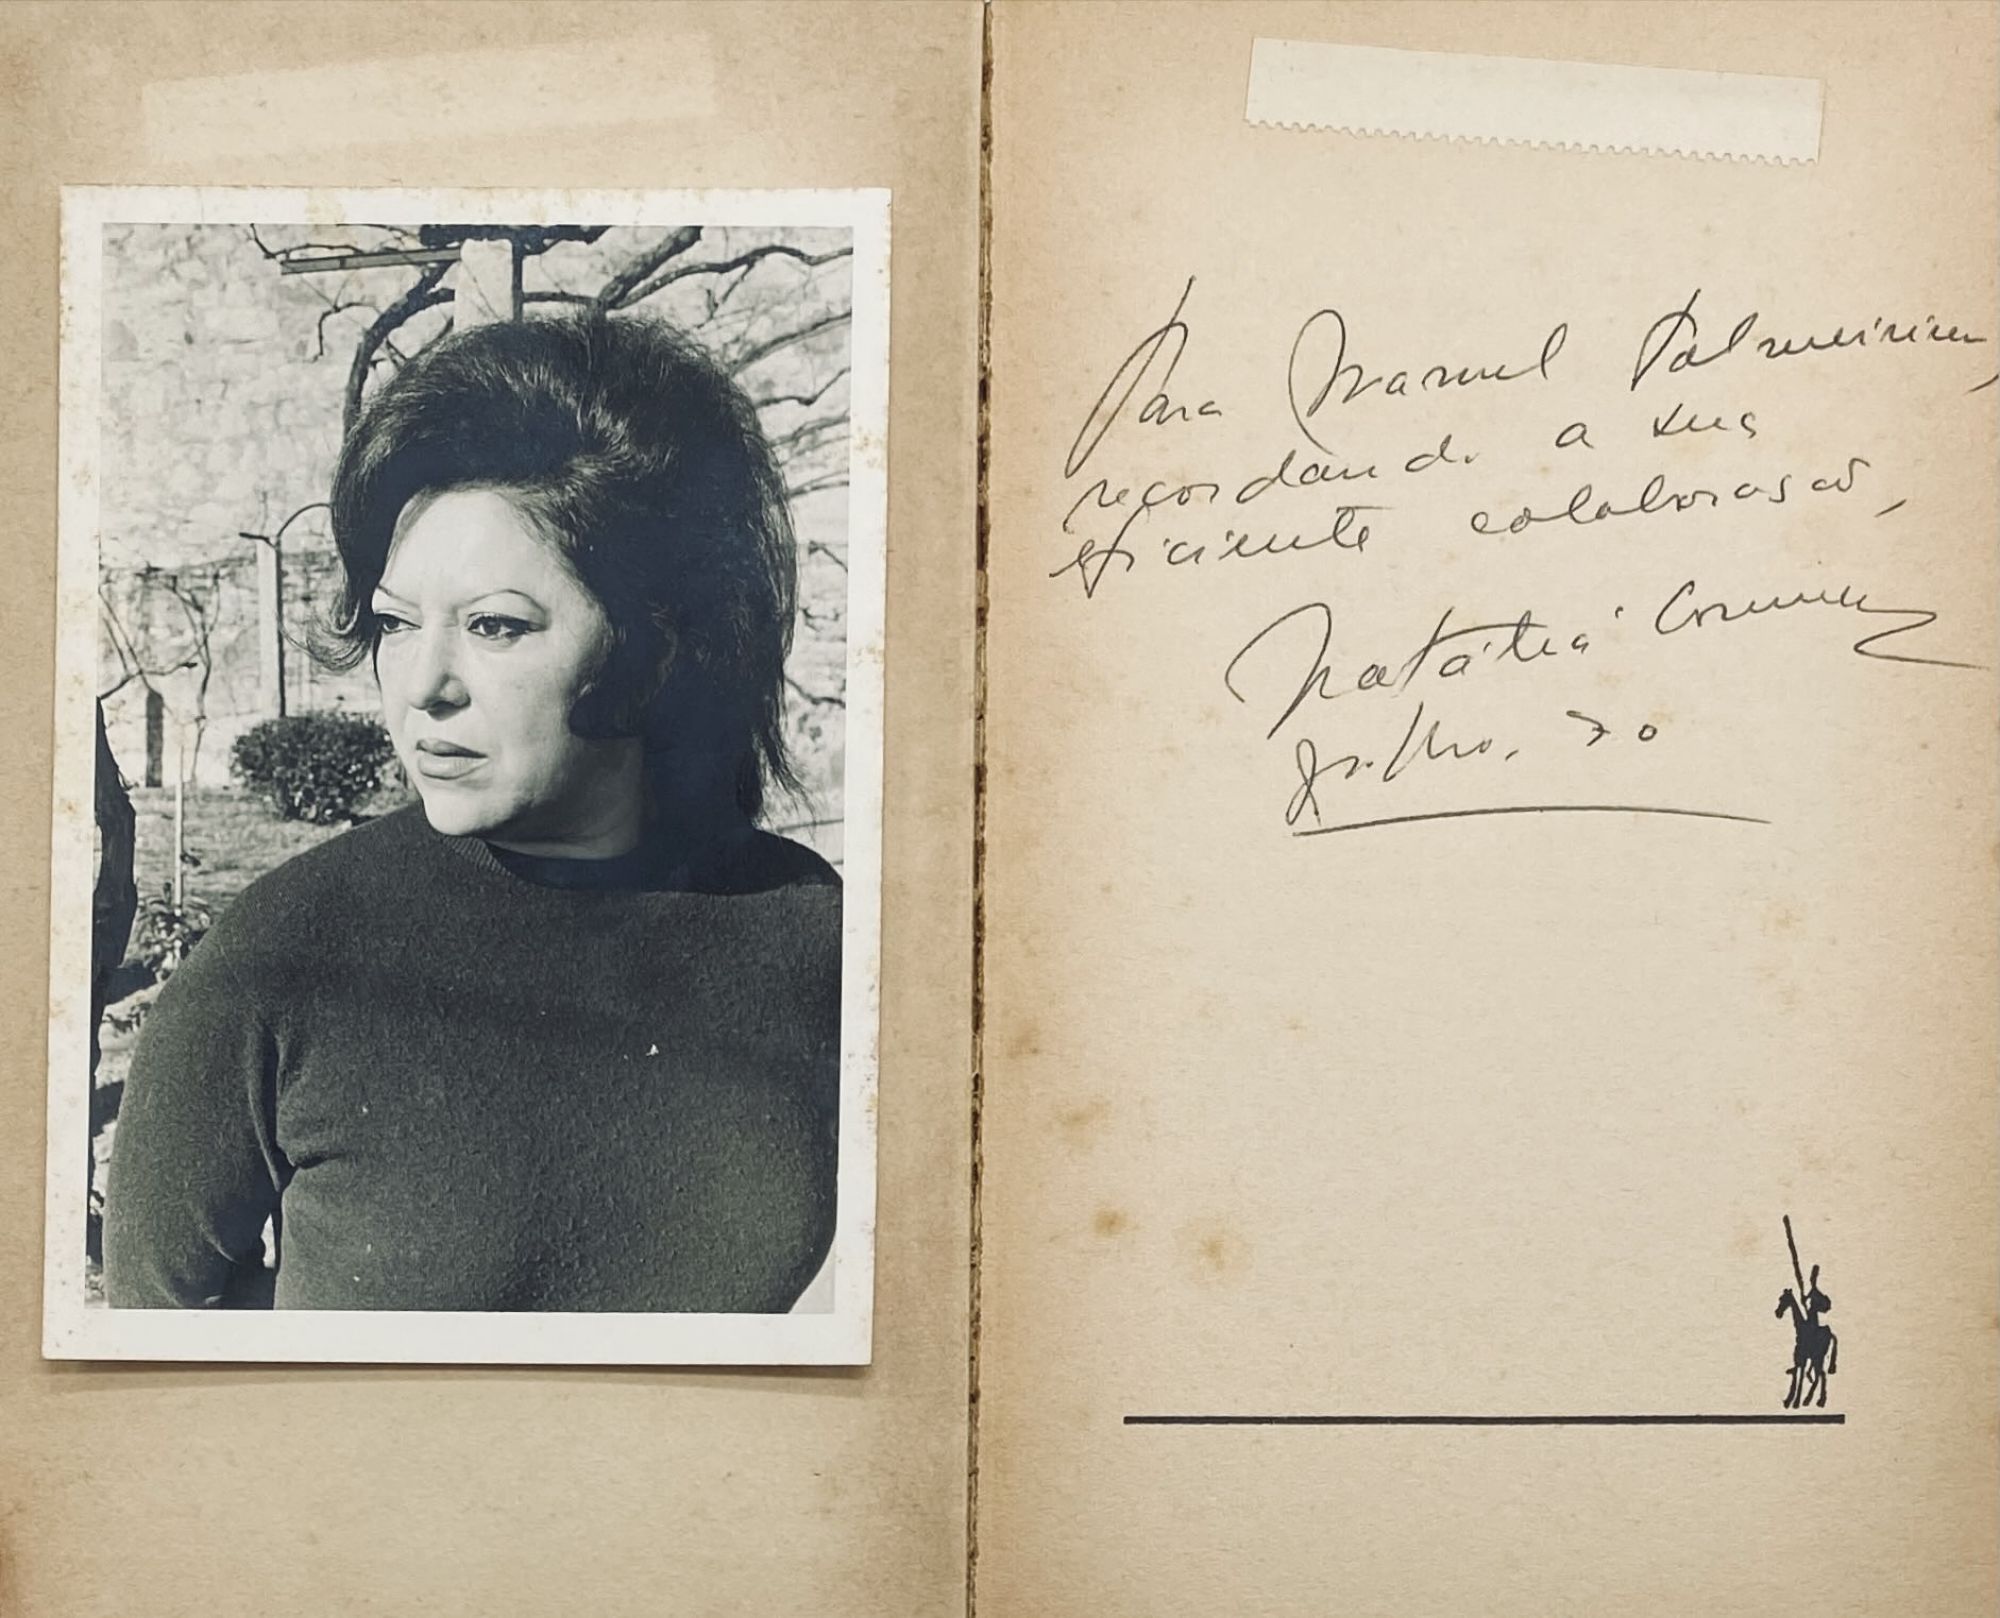 Para Manuel Palmeirim,
recordando a sua
eficiente colaboração,
Natália Correia
Julho, 70